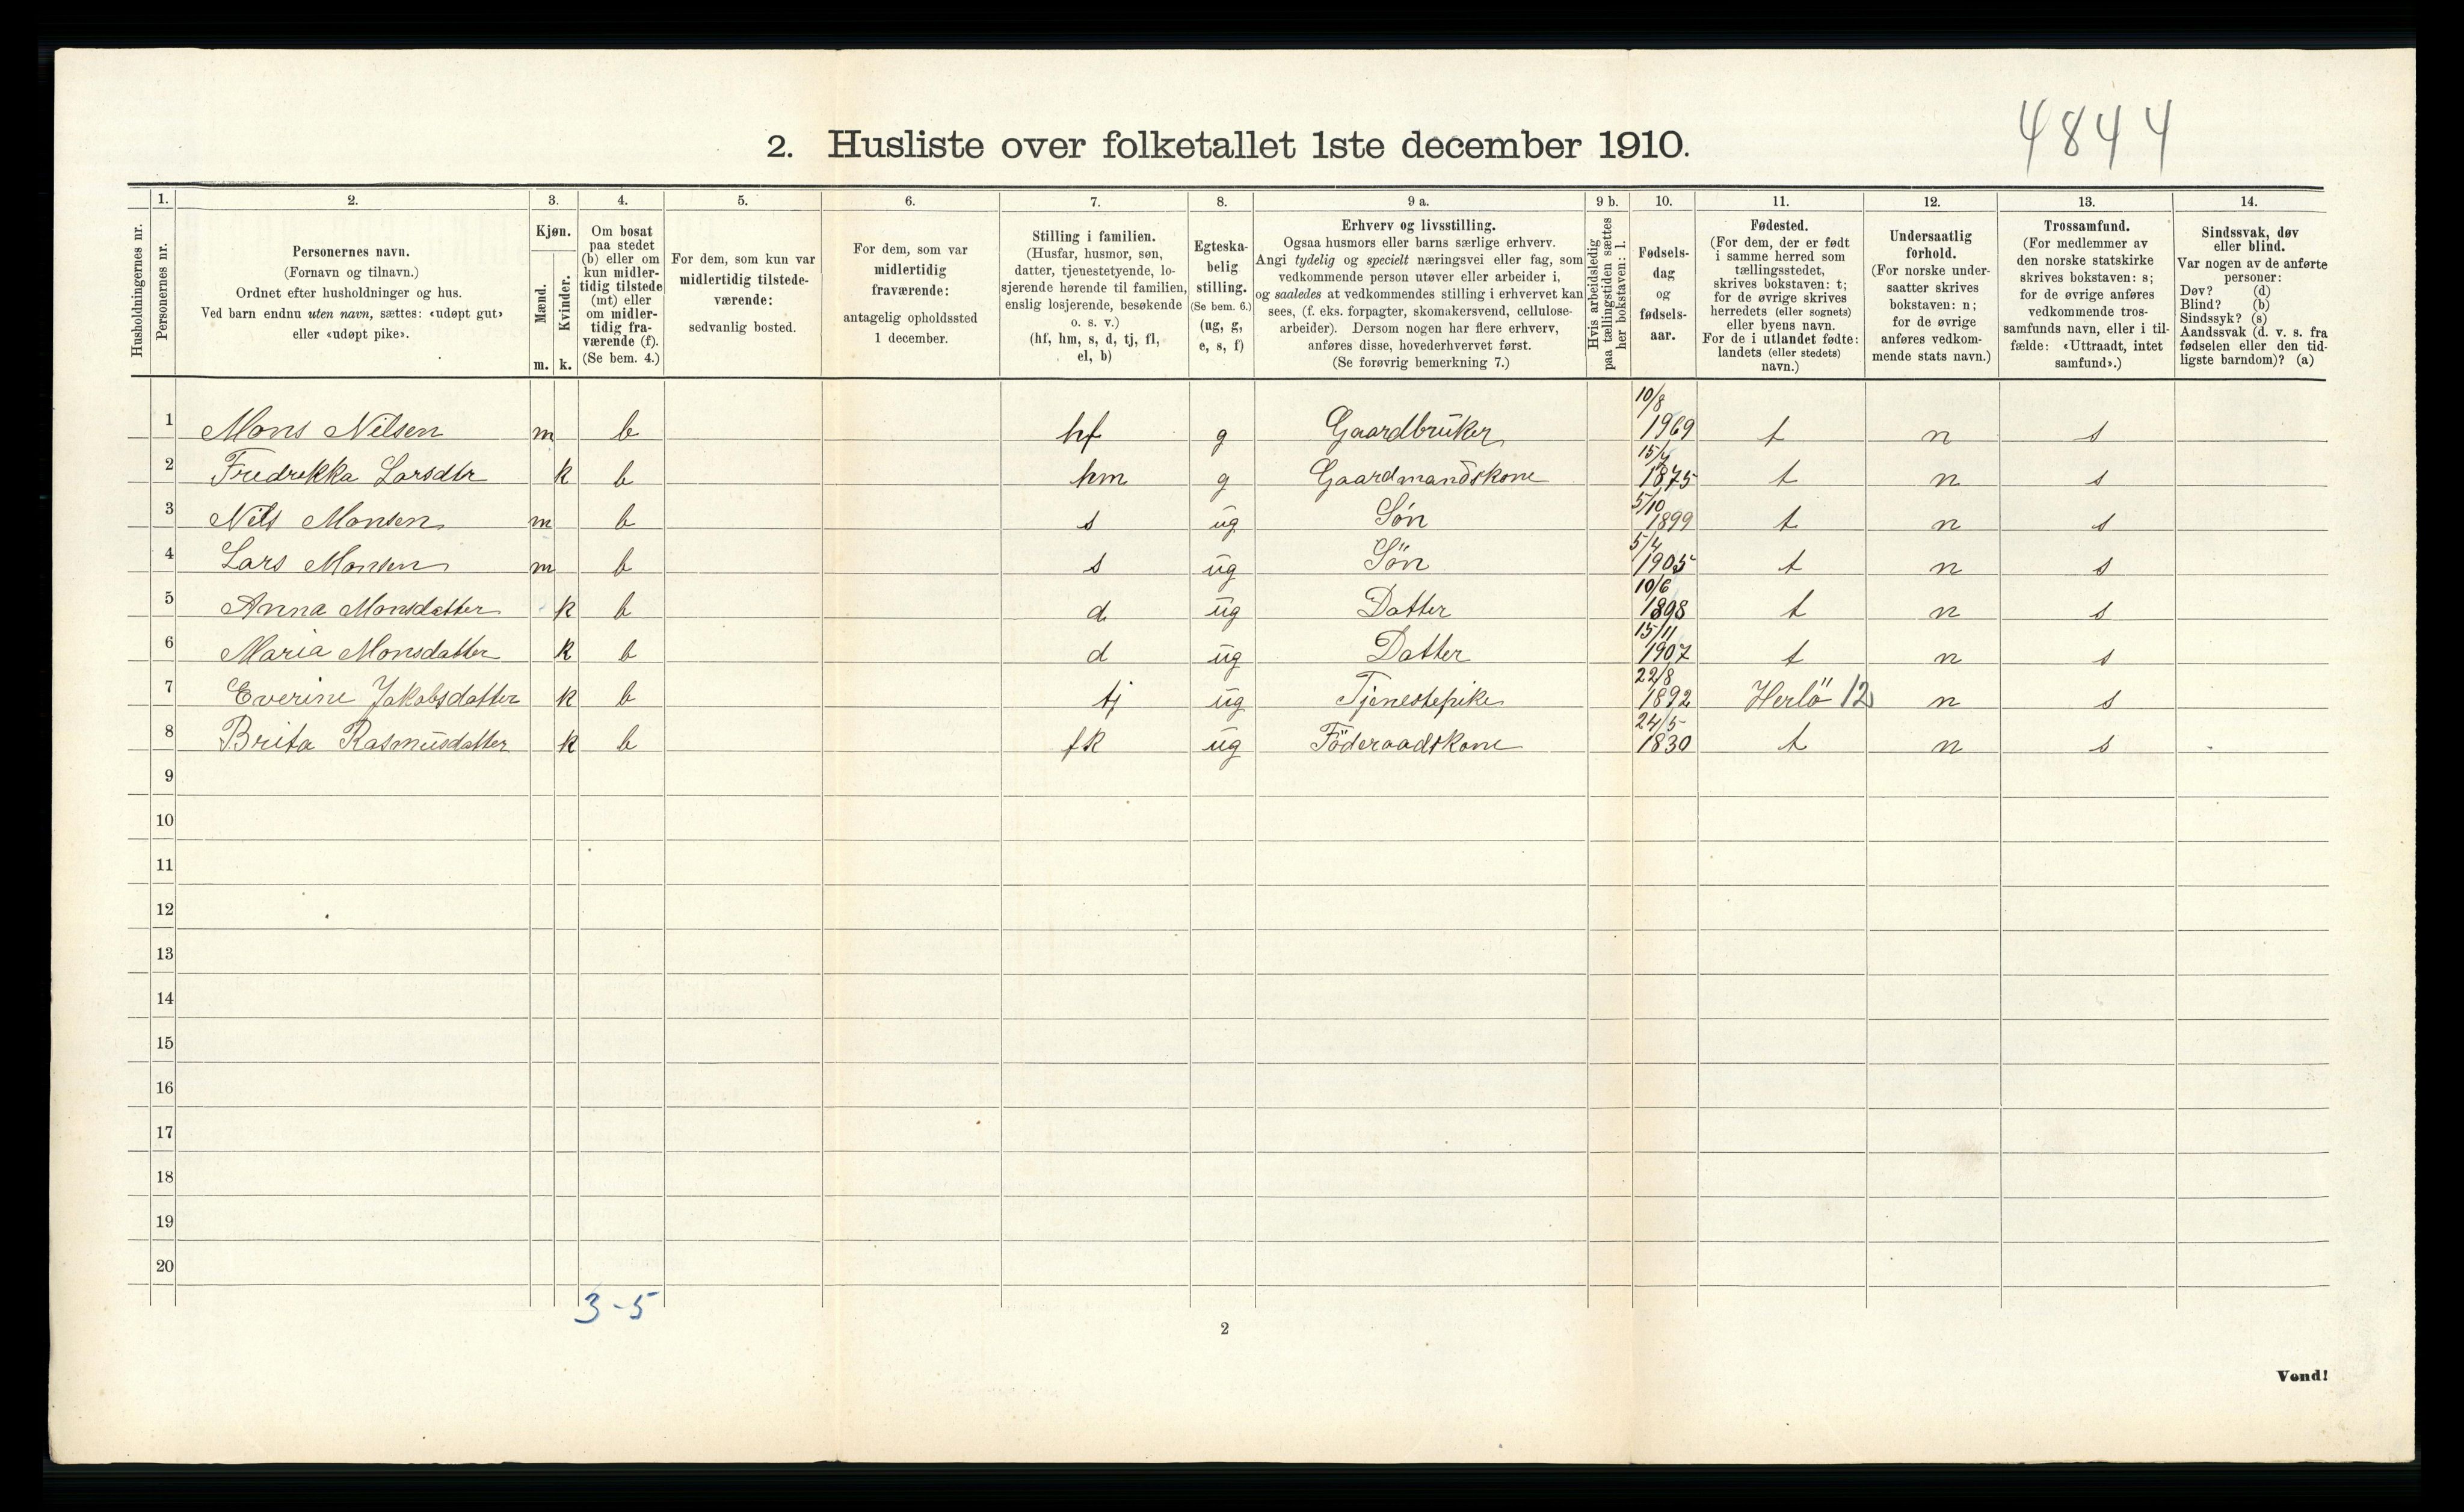 4844
2. Husliste over folketallet 1ste december 1910.
1. 2. 3. 4. 5. 6. 7. 8. 9 a. 9 b. 10. 11. 12. 13. 14.
Husholdningernes nr.
Personernes nr.
Personernes navn.
(Fornavn og tilnavn.)
Ordnet efter husholdninger og hus.
Ved barn endnu uten navn, sættes: «udøpt gut»
eller «udøpt pike».
Kjøn.
Mænd.
Kvinder.
m. k.
Om bosat
paa stedet
(b) eller om
kun midler-
tidig tilstede
(mt) eller
om midler-
tidig fra-
værende (f).
(Se bem. 4.)
For dem, som kun var
midlertidig tilstede-
værende:
sedvanlig bosted.
For dem, som var
midlertidig
fraværende:
antagelig opholdssted
1 december.
Stilling i familien.
(Husfar, husmor, søn,
datter, tjenestetyende, lo-
sjerende hørende til familien,
enslig losjerende, besøkende
o. s. v.)
(hf, hm, s, d, tj, fl,
el, b)
Egteska-
belig
stilling.
(Se bem. 6.)
(ug, g,
e, s, f)
Erhverv og livsstilling.
Ogsaa husmors eller barns særlige erhverv.
Angi tydelig og specielt næringsvei eller fag, som
vedkommende person utøver eller arbeider i,
og saaledes at vedkommendes stilling i erhvervet kan
sees, (f. eks. forpagter, skomakersvend, cellulose-
arbeider). Dersom nogen har flere erhverv,
anføres disse, hovederhvervet først.
(Se forøvrig bemerkning 7.)
Hvis arbeidsledig
paa tællingstiden sættes
her bokstaven: l.
Fødsels-
dag
og
fødsels-
aar.
Fødested.
(For dem, der er født
i samme herred som
tællingsstedet,
skrives bokstaven: t;
for de øvrige skrives
herredets (eller sognets)
eller byens navn.
For de i utlandet fødte:
landets (eller stedets)
navn.)
Undersaatlig
forhold.
(For norske under-
saatter skrives
bokstaven: n;
for de øvrige
anføres vedkom-
mende stats navn.)
Trossamfund.
(For medlemmer av
den norske statskirke
skrives bokstaven: s;
for de øvrige anføres
vedkommende tros-
samfunds navn, eller i til-
fælde: «Uttraadt, intet
samfund».)
Sindssvak, døv
eller blind.
Var nogen av de anførte
personer:
Døv? (d)
Blind? (b)
Sindssyk? (s)
Aandssvak (d. v. s. fra
fødselen eller den tid-
ligste barndom)? (a)
1 Mons Nilsen m b hf g Gaardbruker 10/8 1969 t n s
2 Fredrikka Larsdtr k b hm g Gaardmandskone 15/7 1875 t n s
3 Nils Monsen m b s ug Søn 5/10 1899 t n s
4 Lars Monsen m b s ug Sön 5/4 1905 t n s
5 Anna Monsdatter k b d ug Datter 10/6 1898 t n s
6 Maria Monsdatter k b d ug Datter 15/11 1907 t n s
7 Everine Jakobsdatter k b tj ug Tjenestepike 22/8 1892 Herlö 12 n s
8 Brita Rasmusdatter k b fk ug Föderaadskone 24/5 1830 t n s
9
10
11
12
13
14
15
16
17
18
19
20
3-5
2
Vend!